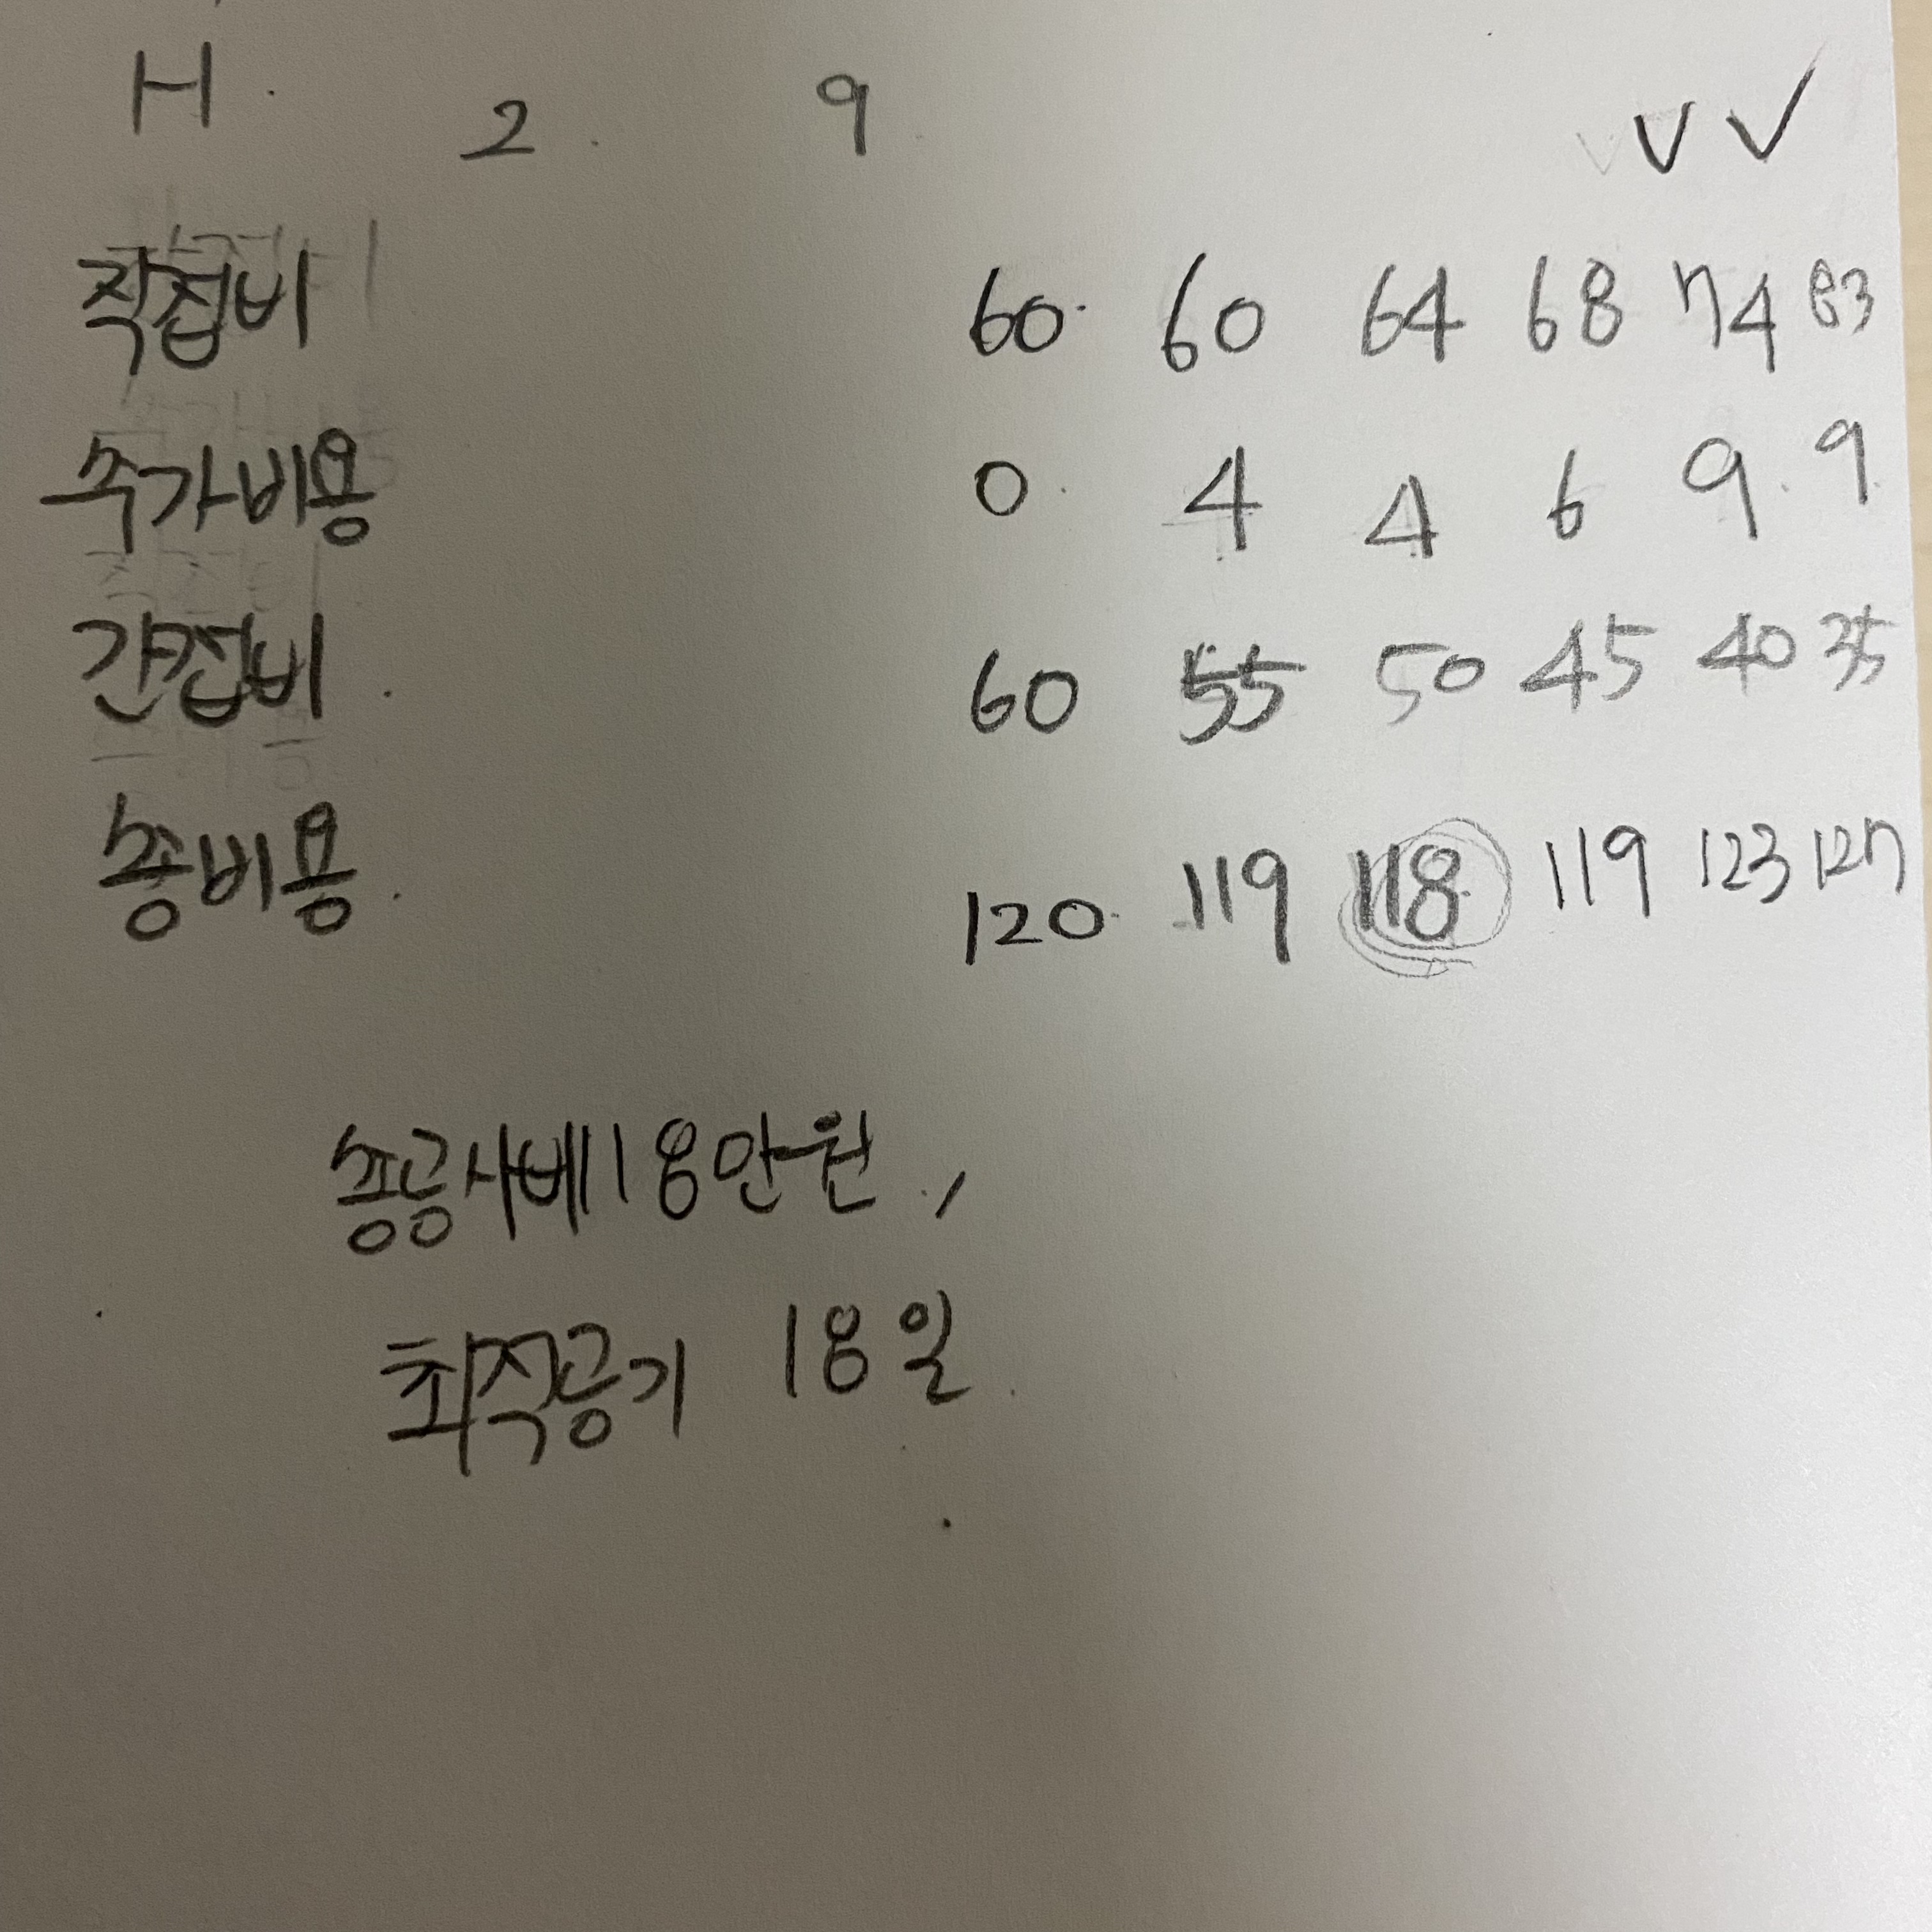 H. 2. 9 V V ✓
직접비 60. 60 64 68 74 83
추가비용 0. 4 4 6 9. 9.
간접비. 60 55 50 45 40 35
총비용. 120. 119 118 119 123 127
총공사비 118만원,
최적공기 18일.